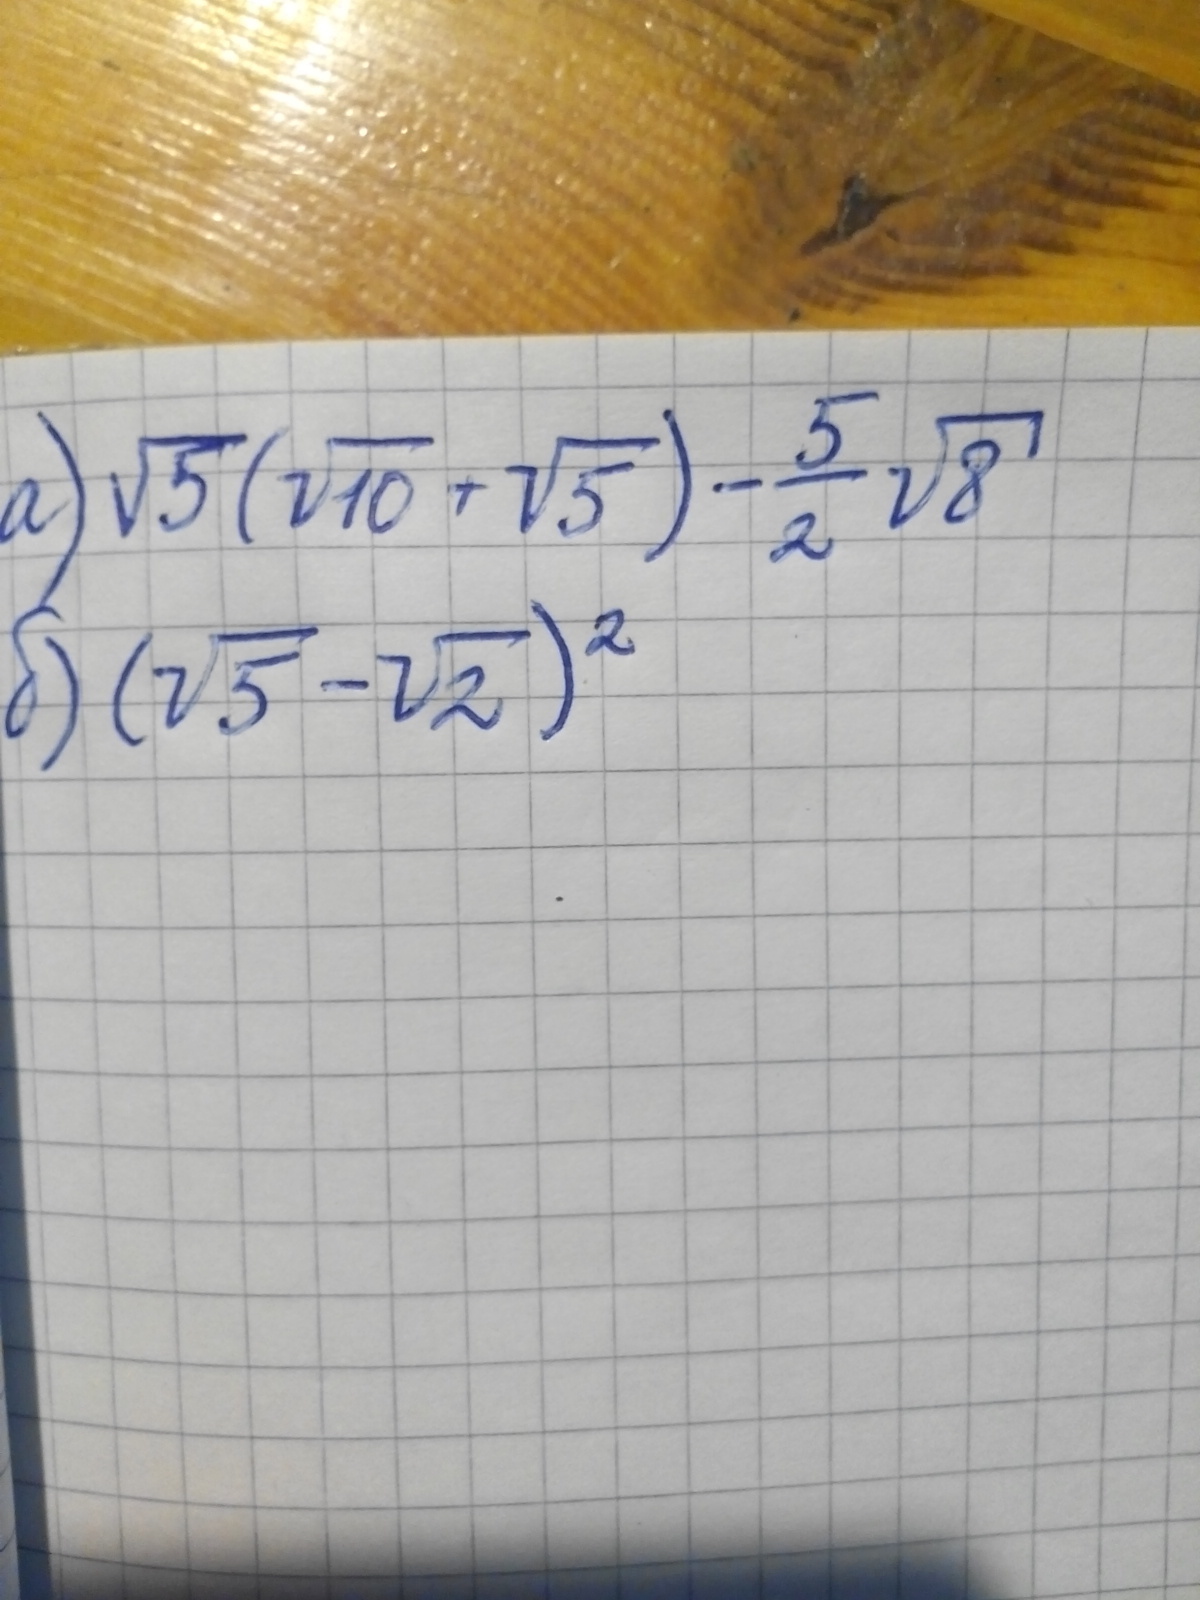 а) √5(√10 + √5) - 5/2 √8
б) (√5 - √2)²